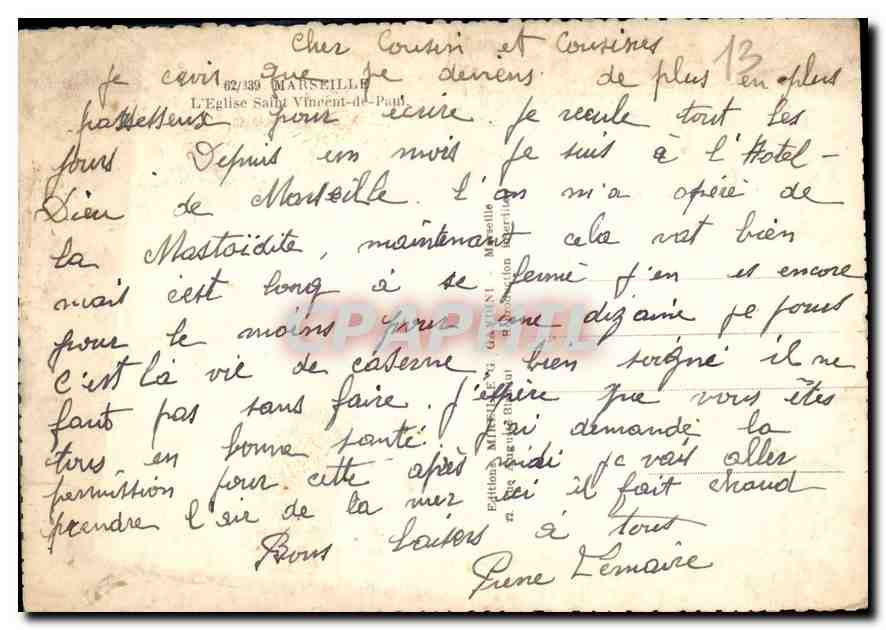 Cher Cousin et Cousines
13
je crois que je deviens de plus en plus
62/339 MARSEILLE
L'Eglise Saint Vincent-de-Paul
paresseux pour écrire. je recule tout les
jours. Depuis un mois je suis à l'Hotel-
Dieu de Marseille. l'on m'a opéré de
la Mastoïdite, maintenant cela vat bien
mais c'est long à se fermé j'en es encore
pour le moins pour une dizaine je jours
c'est la vie de caserne, bien soigné il ne
faut pas sans faire. J'espère que vous êtes
tous en bonne santé j'ai demandé la
permission pour cette après midi je vais aller
prendre l'air de la mer ici il fait chaud
Bons baisers à tous
Pierre Lemaire
Editions MIREILLE, G. GANDINI - Marseille
Rue Auguste Blanqui Reproduction interdite
CPAPHIL